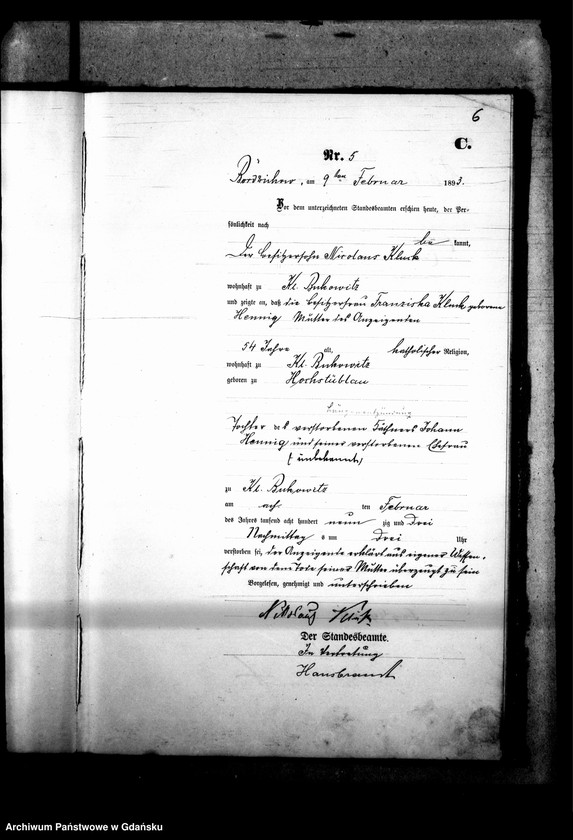 6
C.
Nr. 5
am 9ten Februar 1893.
Vor dem unterzeichneten Standesbeamten erschien heute, der Per-
sönlichkeit nach
be kannt,
Der Besitzersohn Nicolaus Kluck
wohnhaft zu Kl. Bukowitz
und zeigte an, daß die Besitzerfrau Franziska Kluck geborene
Hennig Mutter des Anzeigenden
54 Jahre alt, katholischer Religion,
wohnhaft zu Kl. Bukowitz
geboren zu Hochstüblau
Lungenentzündung
Tochter des verstorbenen Käthners Johann
Hennig und seiner verstorbenen Ehefrau
(unbekannt)
zu Kl. Bukowitz
am acht ten Februar
des Jahres tausend acht hundert neun zig und drei
Nachmittag s um drei Uhr
verstorben sei, der Anzeigende erklärt aus eigener Wissen-
schaft von dem Tode seiner Mutter überzeugt zu sein
Vorgelesen, genehmigt und unterschrieben
Nikolaus
Der Standesbeamte.
In Vertretung
Hansbrandt
Archiwum Państwowe w Gdańsku